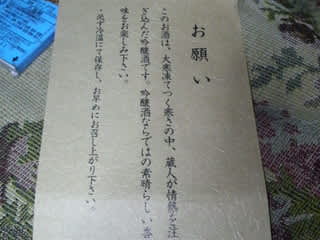 お願い
このお酒は、大寒凍てつく寒さの中、蔵人が情熱を注
ぎ込んだ吟醸酒です。吟醸酒ならではの素晴らしい香
味をお楽しみ下さい。
・必ず冷温にて保存し、お早めにお召し上がり下さい。